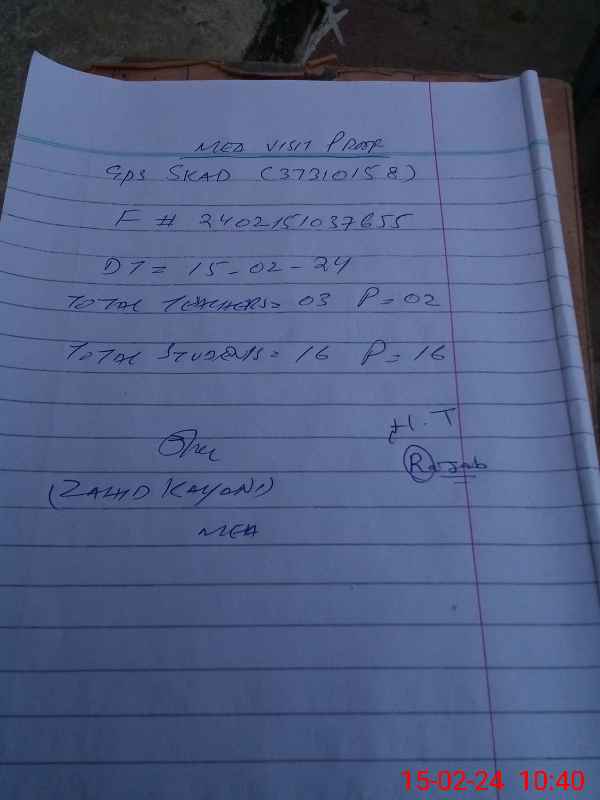 MEA VISIT PROOF
GPS SKAD (37310158)
F # 2402151037655
DT = 15-02-24
TOTAL TEACHERS = 03 P = 02
TOTAL STUDENTS = 16 P = 16
H.T
Rajab
(ZAHID KAYANI)
MEA
15-02-24 10:40